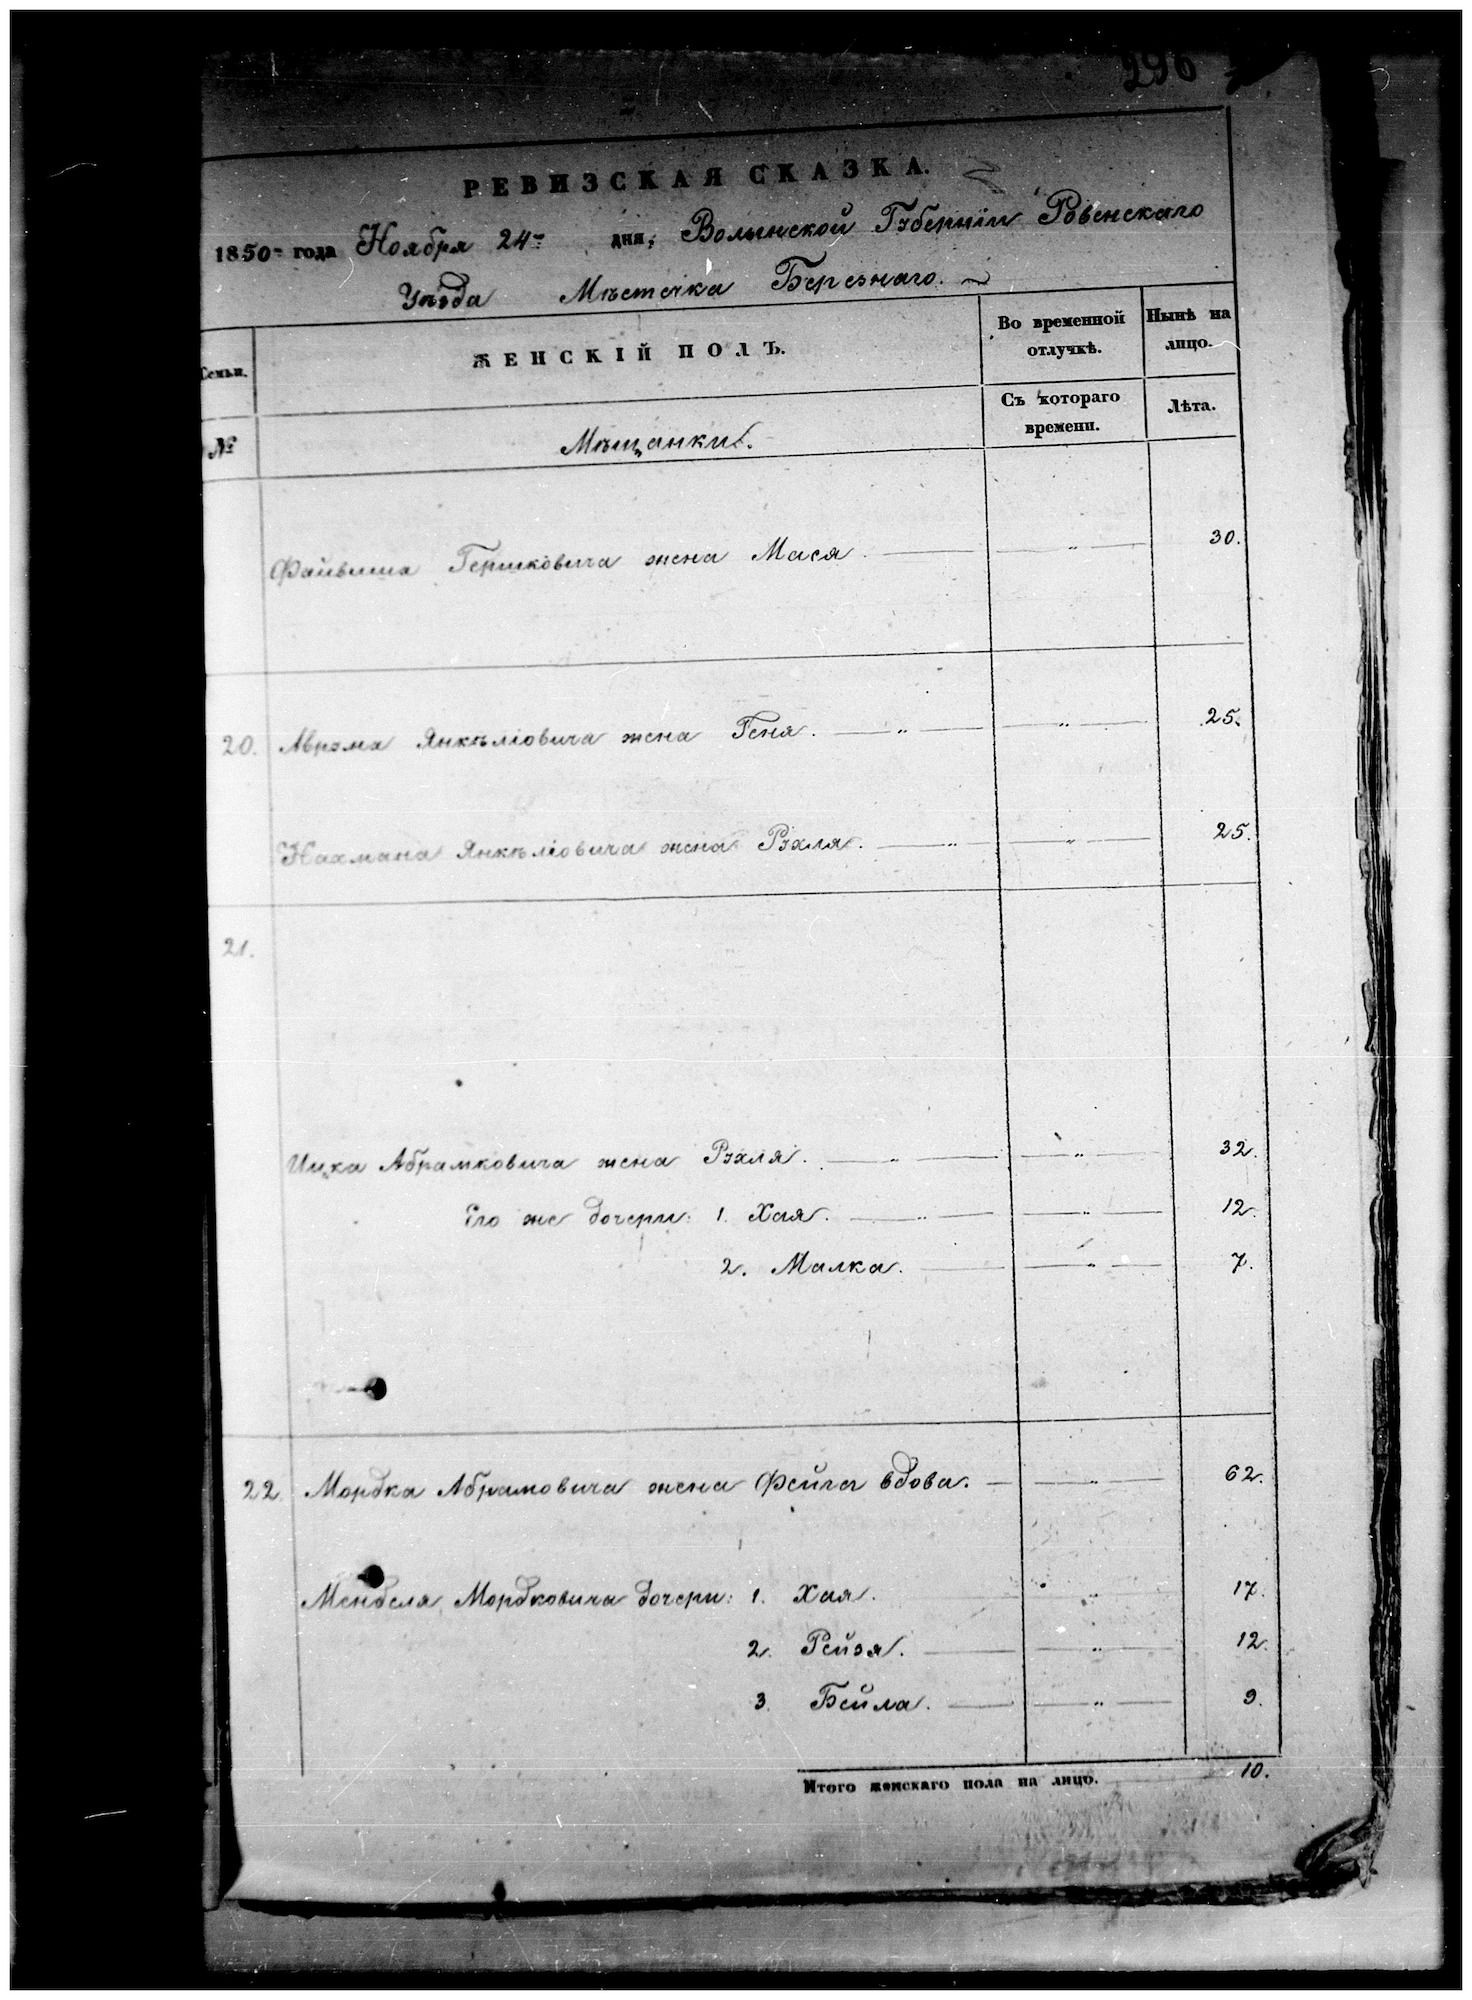 296
РЕВИЗСКАЯ СКАЗКА.
1850 года Ноября 24 дня, Волынской Губернiи Ровенскаго
Уѣзда Мѣстечка Березнаго.
Семьи.
ЖЕНСКIЙ ПОЛЪ.
Во временной отлучкѣ.
Нынѣ на лицо.
№
Мѣщанки.
Съ котораго времени.
Лѣта.
Файвиша Гершковича жена Мася. — „ — 30.
20. Аврэма Янкѣлiовича жена Геня. — „ — „ — 25.
Нахмана Янкѣлiовича жена Рэхля. — „ — „ — 25.
21.
Ицка Абрамковича жена Рэхля. — „ — „ — 32.
Его же дочери: 1. Хая. — „ — „ — 12.
2. Малка. — „ — 7.
22. Мордка Абрамовича жена Фейга вдова. — „ — 62.
Менделя Мордковича дочери: 1. Хая. „ 17.
2. Рейзя. — „ — 12.
3. Бейла. — „ — 9.
Итого женскаго пола на лицо. 10.